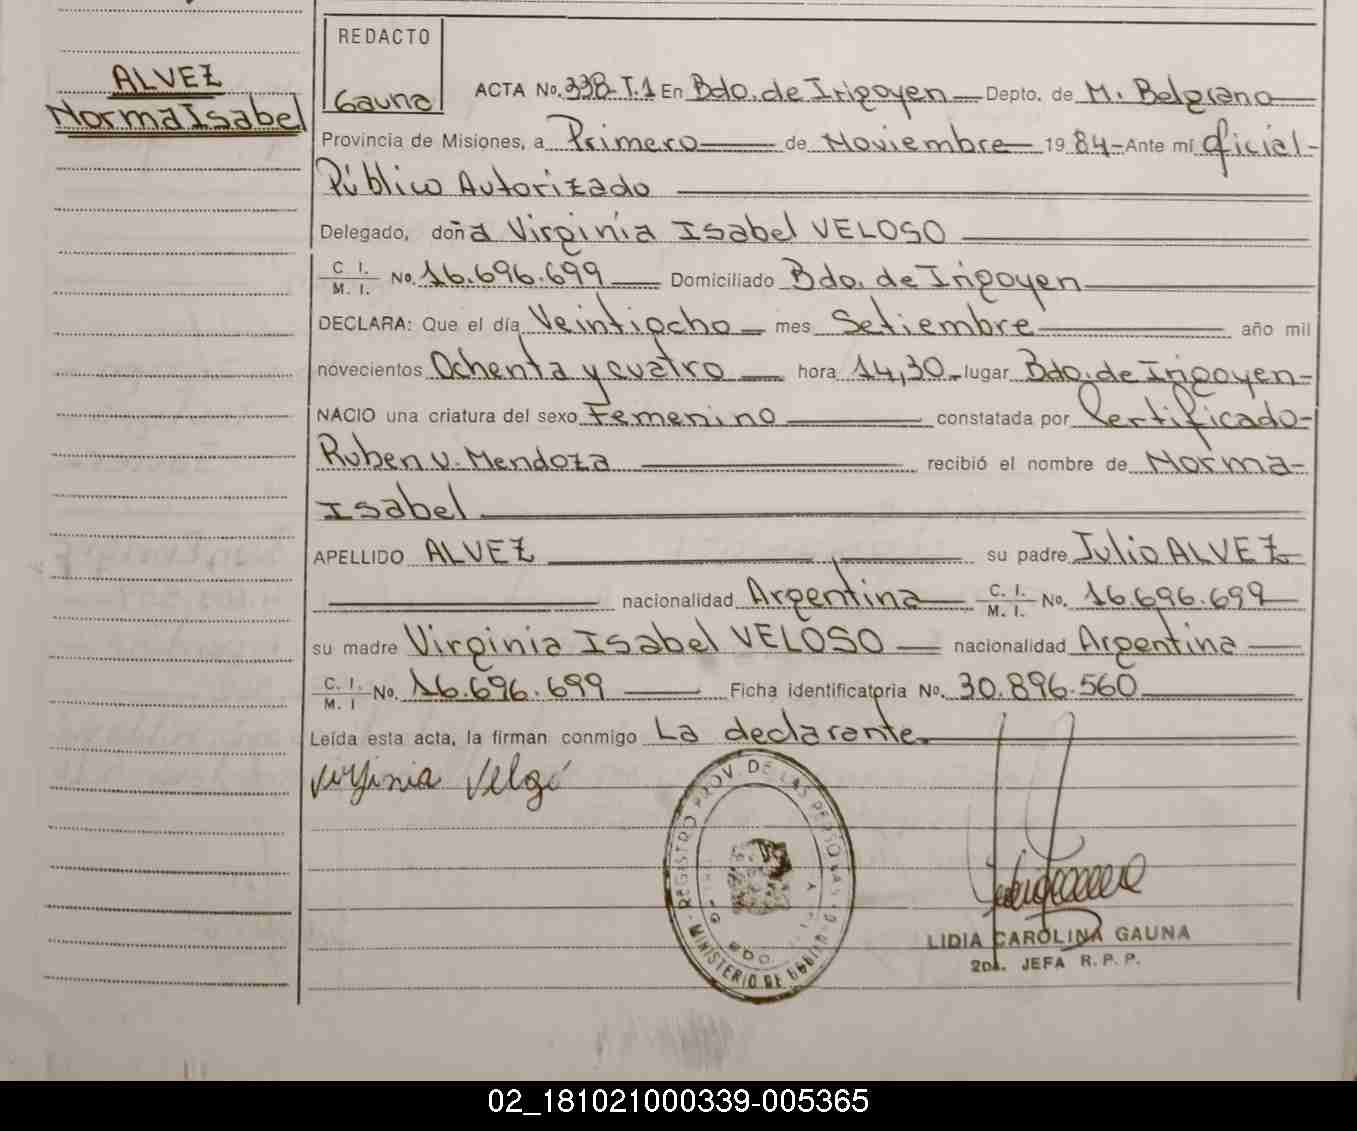 ALVEZ
Norma Isabel
REDACTO
Gauna
ACTA No. 338-T.1 En Bdo. de Irigoyen Depto. de M. Belgrano
Provincia de Misiones, a Primero de Noviembre 1984- Ante mí Oficial-
Público Autorizado
Delegado, doña Virginia Isabel VELOSO
C. I. / M. I. No. 16.696.699 Domiciliado Bdo. de Irigoyen
DECLARA: Que el día Veintiocho mes Setiembre año mil
novecientos Ochenta y cuatro hora 14,30 lugar Bdo. de Irigoyen-
NACIO una criatura del sexo Femenino constatada por Certificado-
Ruben V. Mendoza recibió el nombre de Norma-
Isabel
APELLIDO ALVEZ su padre Julio ALVEZ
nacionalidad Argentina C. I. / M. I. No. 16.696.699
su madre Virginia Isabel VELOSO nacionalidad Argentina
C. I. / M. I No. 16.696.699 Ficha identificatoria No. 30.896.560
Leída esta acta, la firman conmigo La declarante.
Virginia
REGISTRO PROV. DE LAS PERSONAS
MINISTERIO DE
LIDIA CAROLINA GAUNA
2DA. JEFA R. P. P.
02_181021000339-005365